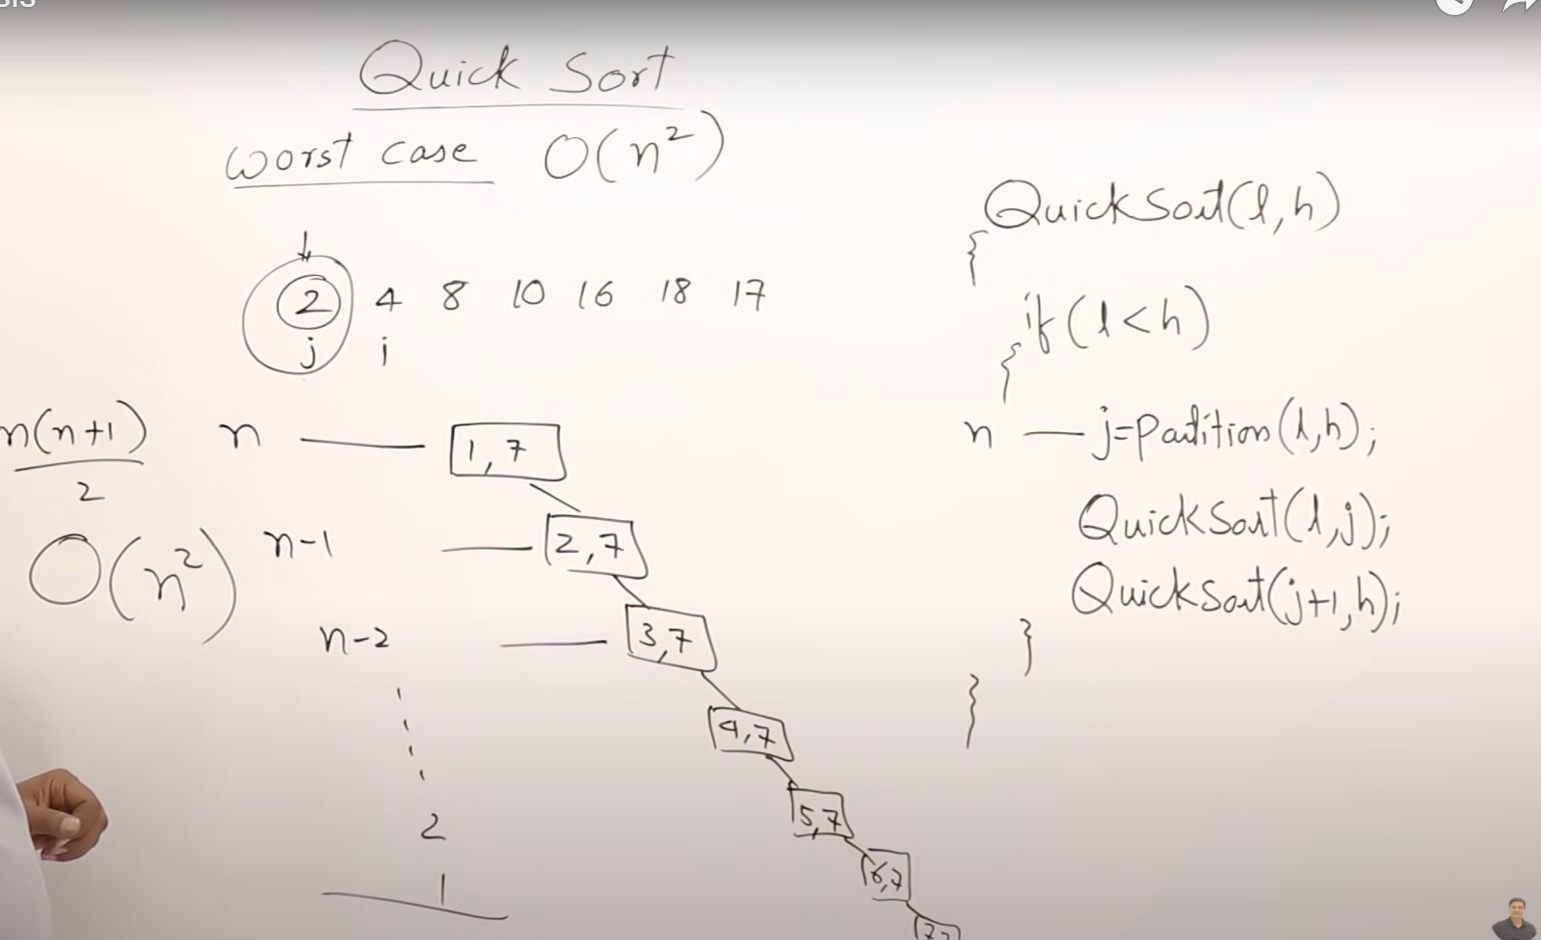 Quick Sort
worst case O(n²)
2 4 8 10 16 18 17
j i
n(n+1)
2
O(n²)
n — 1,7
n-1 — 2,7
n-2 — 3,7
4,7
5,7
6,7
2
1
QuickSort(l,h)
{
if(l<h)
{
n — j=partition(l,h);
QuickSort(l,j);
QuickSort(j+1,h);
}
}